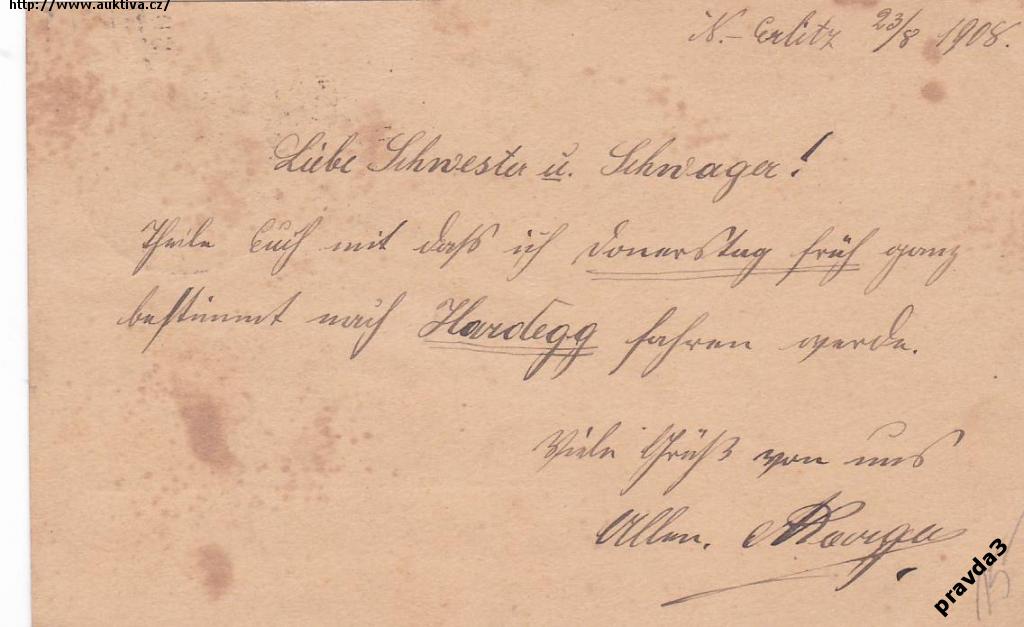 http://www.auktiva.cz/
N.-Erlitz 23/8 1908.
Liebe Schwester u. Schwager!
Theile Euch mit daß ich Donerstag früh ganz
bestimmt nach Hardegg fahren werde.
Viele Grüße von uns
Allen.
pravda3